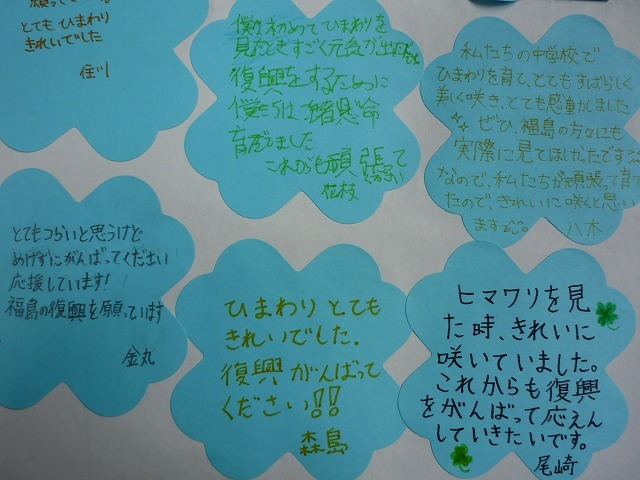 願って
とても ひまわり
きれいでした
住川
僕は初めてひまわりを
見たときすごく元気が出ました
復興をするために
僕たちは一緒懸命
育だてました
これからも頑張って
ください
花枝
私たちの中学校で
ひまわりを育て、とてもすばらしく
美しく咲き、とても感動しました
ぜひ、福島の方々にも
実際に見てほしかったです
なので、私たちが頑張って育て
たので、きれいに咲くと思い
ます
八木
とてもつらいと思うけど
めげずにがんばってください
応援しています!
福島の復興を願っています
金丸
ひまわり とても
きれいでした.
復興 がんばって
ください!!
森島
ヒマワリを見
た時、きれいに
咲いていました。
これからも復興
をがんばって応えん
していきたいです。
尾崎